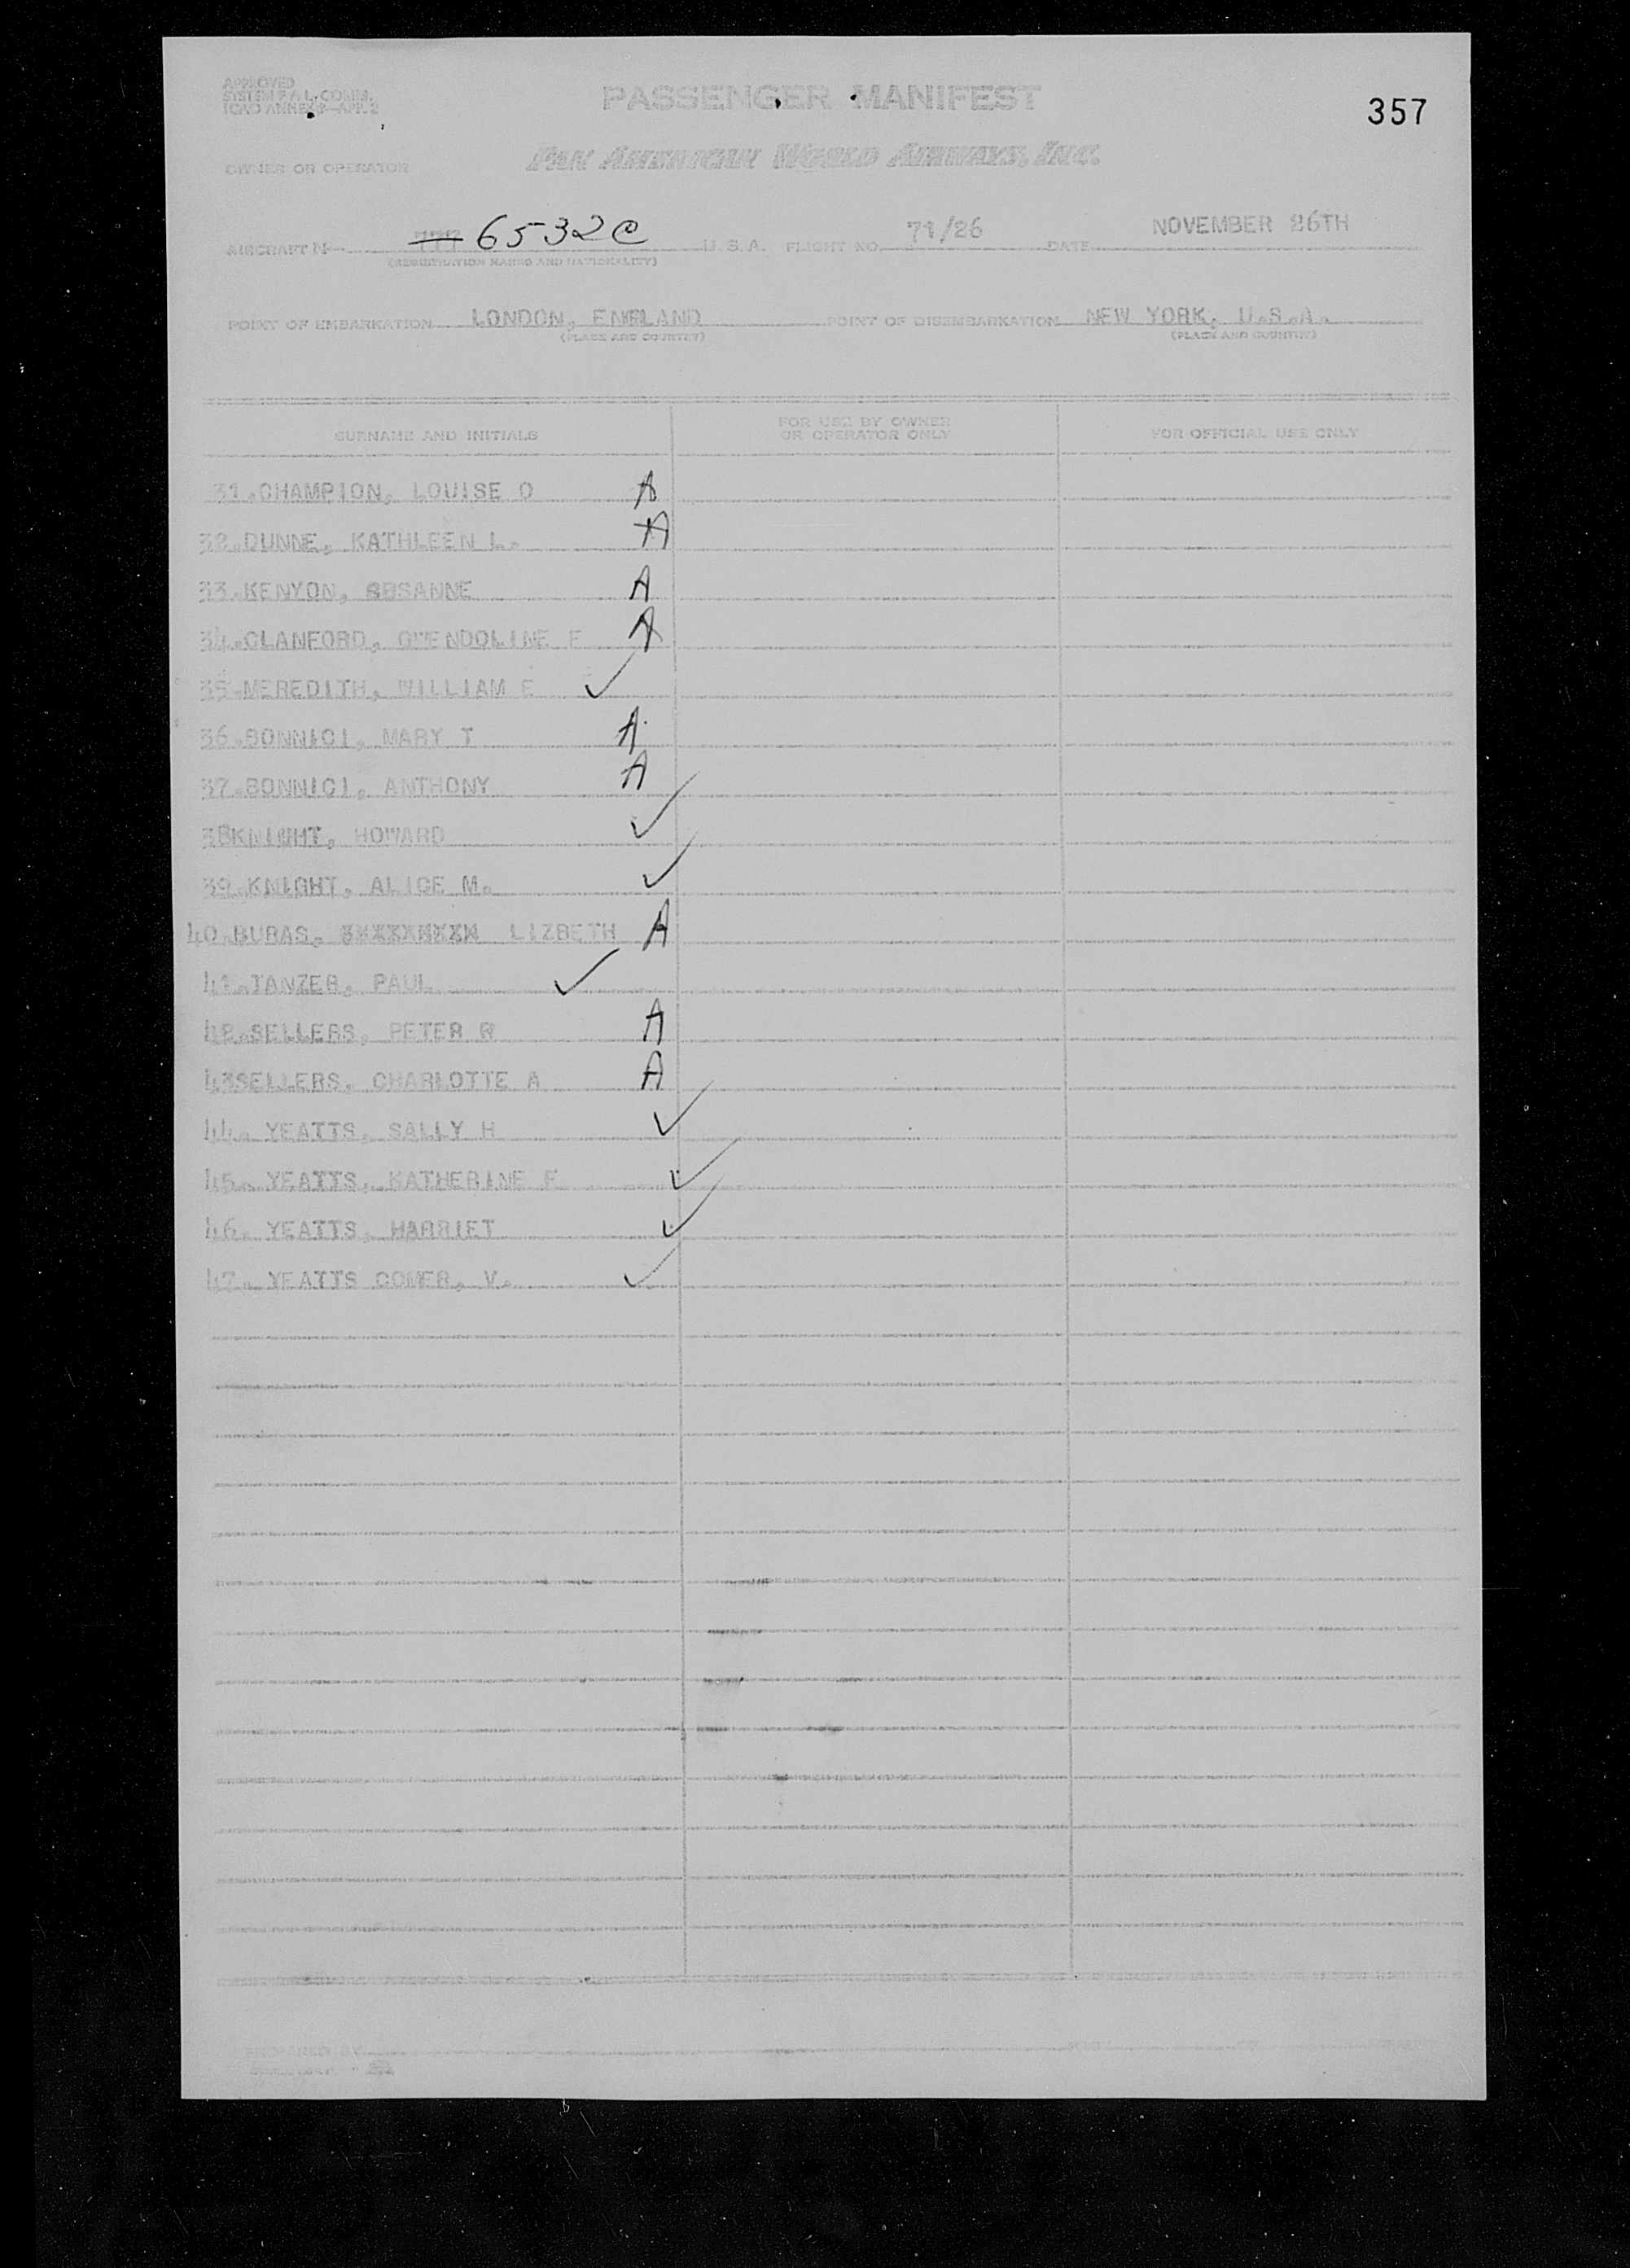 APPROVED
SYSTEM F.A.L. COMM.
ICAO ANNEX 9—APP. 2
PASSENGER MANIFEST
357
OWNER OR OPERATOR
PAN AMERICAN WORLD AIRWAYS, INC.
AIRCRAFT N— 6532C U.S.A. FLIGHT NO. 71/26 DATE NOVEMBER 26TH
(REGISTRATION MARKS AND NATIONALITY)
POINT OF EMBARKATION LONDON, ENGLAND POINT OF DISEMBARKATION NEW YORK, U.S.A.
(PLACE AND COUNTRY) (PLACE AND COUNTRY)
SURNAME AND INITIALS FOR USE BY OWNER OR OPERATOR ONLY FOR OFFICIAL USE ONLY
31.CHAMPION, LOUISE O A
32.DUNNE, KATHLEEN L. A
33.KENYON, SUSANNE A
34.CLANFORD, GWENDOLINE F A
35.MEREDITH, WILLIAM E ✓
36.BONNICI, MARY T A
37.BONNICI, ANTHONY A
38KNIGHT, HOWARD ✓
39.KNIGHT, ALICE M. ✓
40.BURAS, LIZBETH A
41.TANZER, PAUL ✓
42.SELLERS, PETER R A
43SELLERS, CHARLOTTE A A
44. YEATTS, SALLY H ✓
45. YEATTS, KATHERINE F ✓
46. YEATTS, HARRIET ✓
47. YEATTS COMER, V. ✓
PREPARED BY